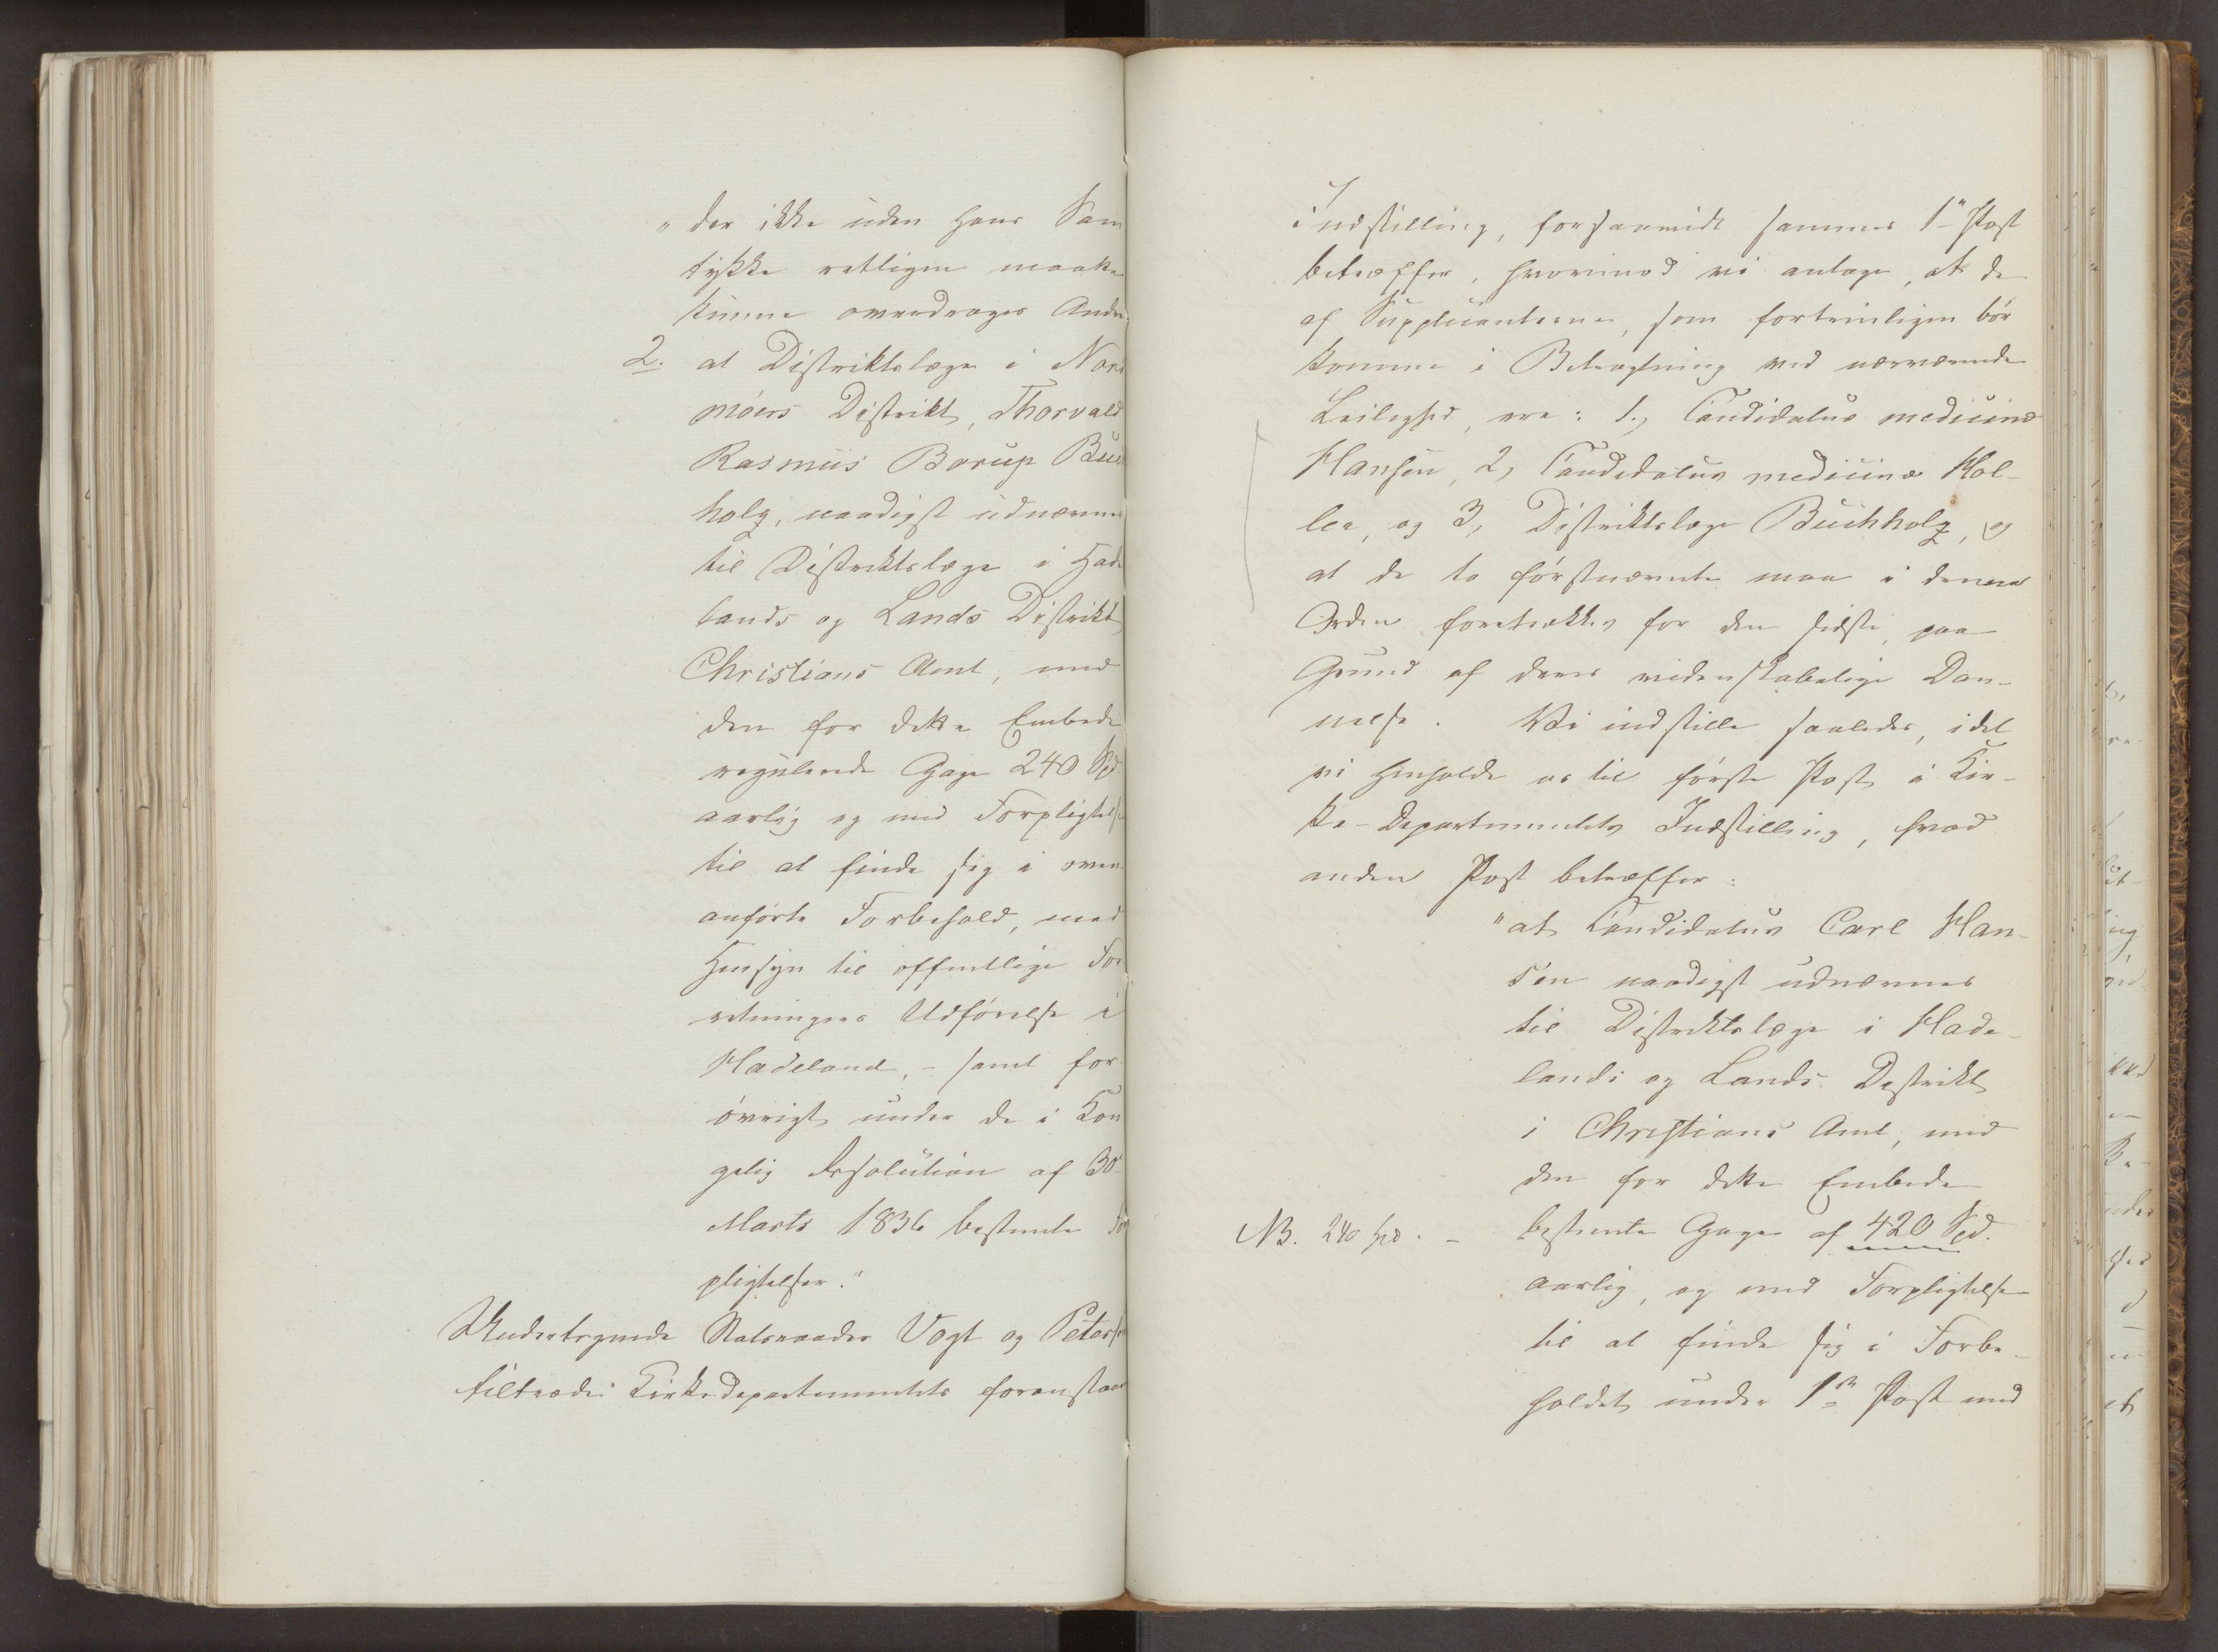 " der ikke uden hans Sam
tykke retligen maatte
kunne overdrages Andre
2. at Distriktslæge i Nord
möers Distrikt, Thorvald
Rasmus Borup Buch
holz, naadigst udnævnes
til Distriktslæge i Hade
lands og Lands Distrikt
Christians Amt, med
den for dette Embede
regulerede Gage 240 Spd.
aarlig og med Forpligtelse
til at finde sig i oven
anförte Forbehold, med
Hensyn til offentlige For
retningers Udförelse i
Hadeland, - samt for
övrigt under de i Kon
gelig Resolution af 30
Marts 1836 bestemte For
pligtelser."
Undertegnede Statsraader Vogt og Petersen
tiltræde Kirkedepartementets foranstaaende
Indstilling, forsaavidt sammes 1ste Post
betræffer, hvorimod vi antage, at de
af Supplicanterne, som fortrinligen bör
komme i Betragtning ved nærværende
Leilighed, ere: 1, Candidatus medicinæ
Hansen, 2, Candidatus medicinæ Hol-
ler, og 3, Distriktslæge Buchholz, og
at de to förstnævnte maa i denne
Orden foretrækkes for den sidste, paa
Grund af deres videnskabelige Dan-
nelse. Vi indstille saaledes, idet
vi henholde os til förste Post i Kir-
ke-Departementets Indstilling, hvad
anden Post betræffer:
"at Candidatus Carl Han-
sen naadigst udnævnes
til Distriktslæge i Hade-
lands og Lands Distrikt
i Christians Amt, med
den for dette Embede
NB. 240 Spd. - bestemte Gage af 420 Spd.
aarlig, og med Forpligtelse
til at finde sig i Forbe-
holdet under 1ste Post med